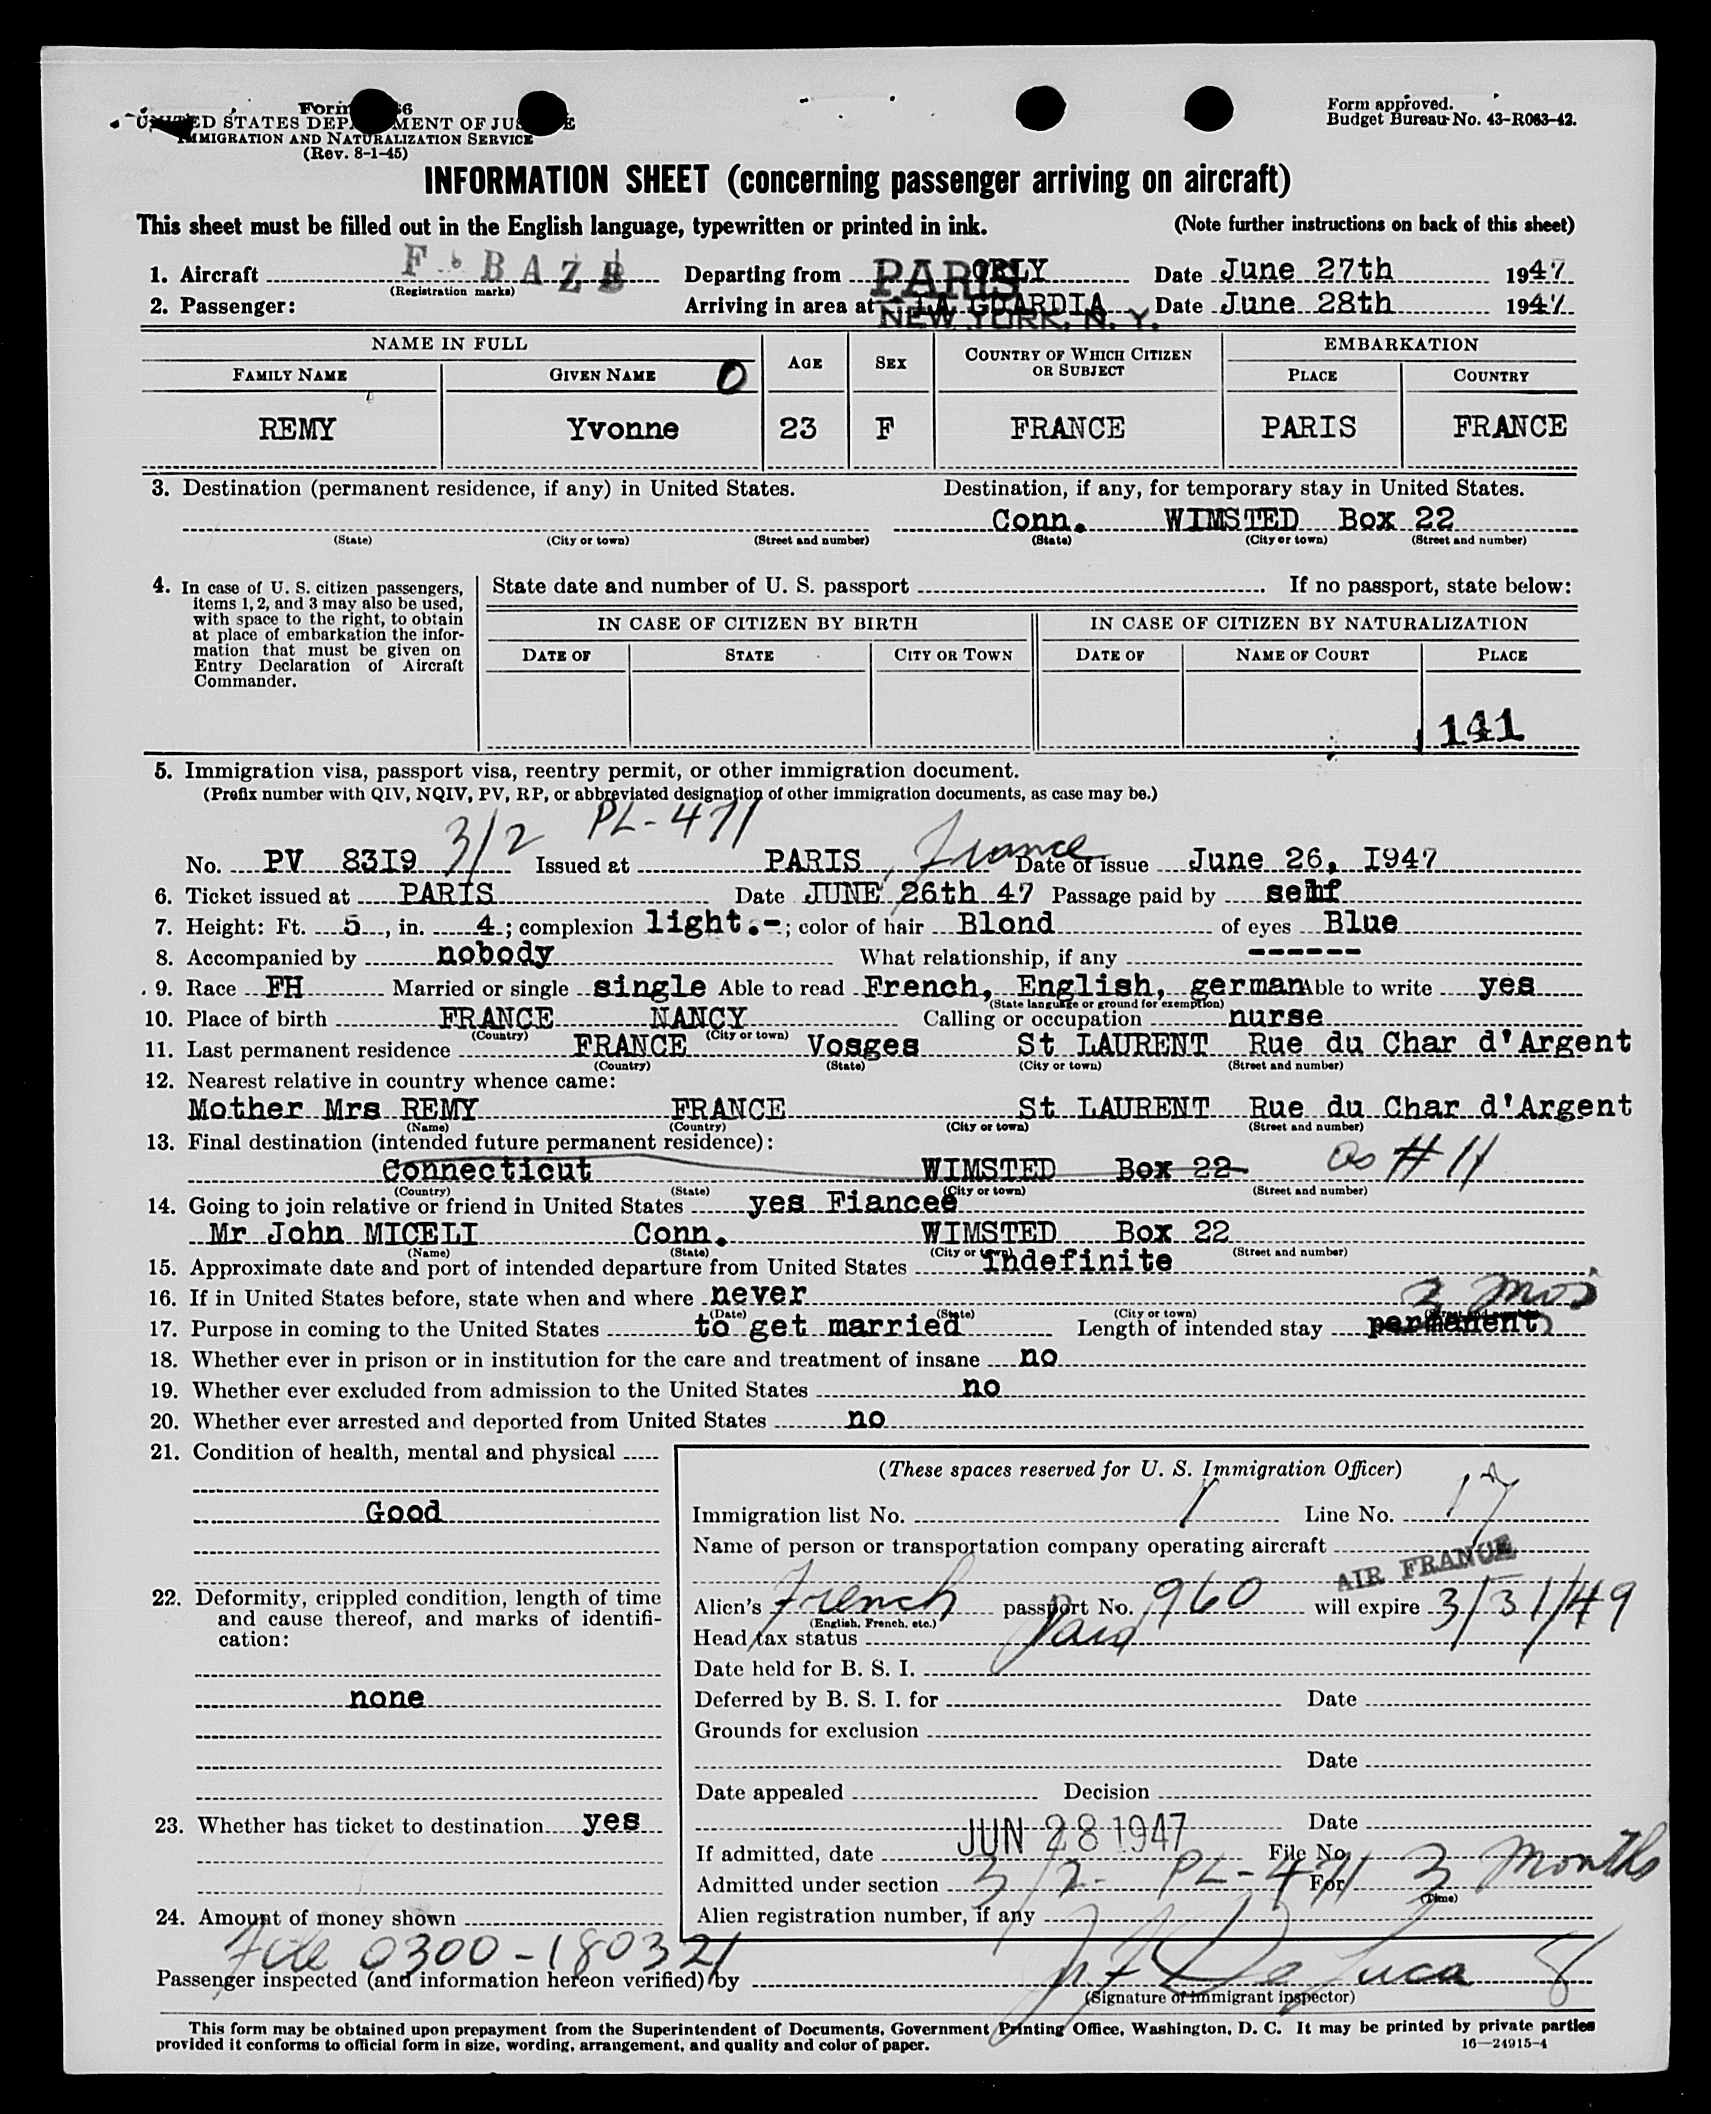 UNITED STATES DEPARTMENT OF JUSTICE
IMMIGRATION AND NATURALIZATION SERVICE
(Rev. 8-1-45)
Form approved.
Budget Bureau No. 43-R063-42.
INFORMATION SHEET (concerning passenger arriving on aircraft)
This sheet must be filled out in the English language, typewritten or printed in ink. (Note further instructions on back of this sheet)
1. Aircraft F. BAZB Departing from PARIS ORLY Date June 27th 1947
(Registration marks)
2. Passenger: Arriving in area at LA GUARDIA NEW YORK, N. Y. Date June 28th 1947
NAME IN FULL AGE SEX COUNTRY OF WHICH CITIZEN OR SUBJECT EMBARKATION
FAMILY NAME GIVEN NAME O PLACE COUNTRY
REMY Yvonne 23 F FRANCE PARIS FRANCE
3. Destination (permanent residence, if any) in United States. Destination, if any, for temporary stay in United States.
Conn. WIMSTED Box 22
(State) (City or town) (Street and number) (State) (City or town) (Street and number)
4. In case of U. S. citizen passengers, items 1, 2, and 3 may also be used, with space to the right, to obtain at place of embarkation the information that must be given on Entry Declaration of Aircraft Commander.
State date and number of U. S. passport If no passport, state below:
IN CASE OF CITIZEN BY BIRTH IN CASE OF CITIZEN BY NATURALIZATION
DATE OF STATE CITY OR TOWN DATE OF NAME OF COURT PLACE
141
5. Immigration visa, passport visa, reentry permit, or other immigration document.
(Prefix number with QIV, NQIV, PV, RP, or abbreviated designation of other immigration documents, as case may be.)
3/2 PL-471
No. PV 83I9 Issued at PARIS, France Date of issue June 26, I947
6. Ticket issued at PARIS Date JUNE 26th 47 Passage paid by self
7. Height: Ft. 5, in. 4; complexion light.-; color of hair Blond of eyes Blue
8. Accompanied by nobody What relationship, if any ------
9. Race FH Married or single single Able to read French, English, german Able to write yes
(State language or ground for exemption)
10. Place of birth FRANCE NANCY Calling or occupation nurse
(Country) (City or town)
11. Last permanent residence FRANCE Vosges St LAURENT Rue du Char d'Argent
(Country) (State) (City or town) (Street and number)
12. Nearest relative in country whence came:
Mother Mrs REMY FRANCE St LAURENT Rue du Char d'Argent
(Name) (Country) (City or town) (Street and number)
13. Final destination (intended future permanent residence):
Connecticut WIMSTED Box 22 as #11
(Country) (State) (City or town) (Street and number)
14. Going to join relative or friend in United States yes Fiancee
Mr John MICELI Conn. WIMSTED Box 22
(Name) (State) (City or town) (Street and number)
15. Approximate date and port of intended departure from United States indefinite
16. If in United States before, state when and where never
(Date) (State) (City or town) (Street and number)
17. Purpose in coming to the United States to get married Length of intended stay permanent mos
18. Whether ever in prison or in institution for the care and treatment of insane no
19. Whether ever excluded from admission to the United States no
20. Whether ever arrested and deported from United States no
21. Condition of health, mental and physical
Good
22. Deformity, crippled condition, length of time and cause thereof, and marks of identification:
none
23. Whether has ticket to destination yes
24. Amount of money shown
(These spaces reserved for U. S. Immigration Officer)
Immigration list No. 1 Line No. 17
Name of person or transportation company operating aircraft
AIR FRANCE
Alien's French passport No. 960 will expire 3/31/49
(English, French, etc.)
Head tax status Paid
Date held for B. S. I.
Deferred by B. S. I. for Date
Grounds for exclusion
Date
Date appealed Decision
Date
If admitted, date JUN 28 1947 File No.
Admitted under section 3/2- PL-471 For 3 Months
(Time)
Alien registration number, if any
File 0300-180321
Passenger inspected (and information hereon verified) by De Luca
(Signature of immigrant inspector)
This form may be obtained upon prepayment from the Superintendent of Documents, Government Printing Office, Washington, D. C. It may be printed by private parties
provided it conforms to official form in size, wording, arrangement, and quality and color of paper. 16—24915-4